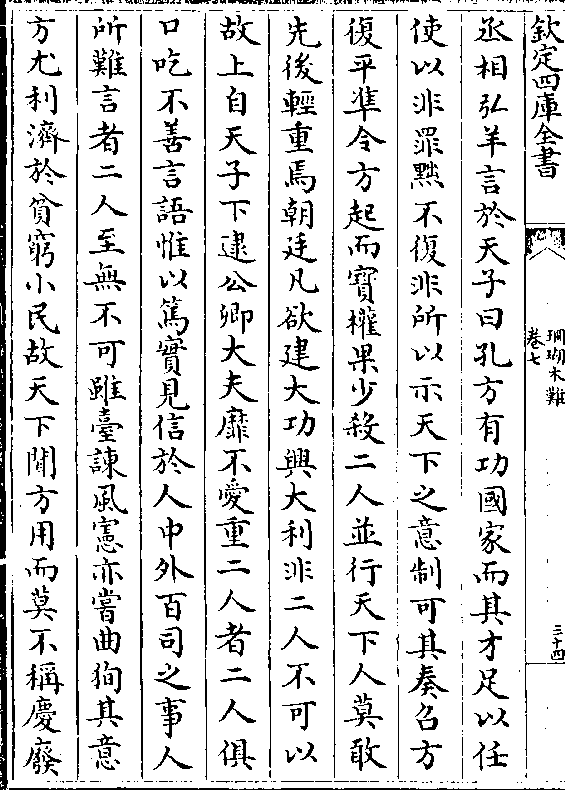 欽定四庫全書
珊瑚木難
卷七
三十四
丞相弘羊言於天子曰孔方有功國家而其才足以任
使以非罪黜不復非所以示天下之意制可其奏召方
復平準令方起而寳權果少殺二人並行天下人莫敢
先後輕重焉朝廷凡欲建大功興大利非二人不可以
故上自天子下逮公卿大夫靡不愛重二人者二人俱
口吃不善言語惟以篤實見信於人中外百司之事人
所難言者二人至無不可雖臺諫風憲亦嘗曲狥其意
方尤利濟於貧窮小民故天下聞方用而莫不稱慶廢